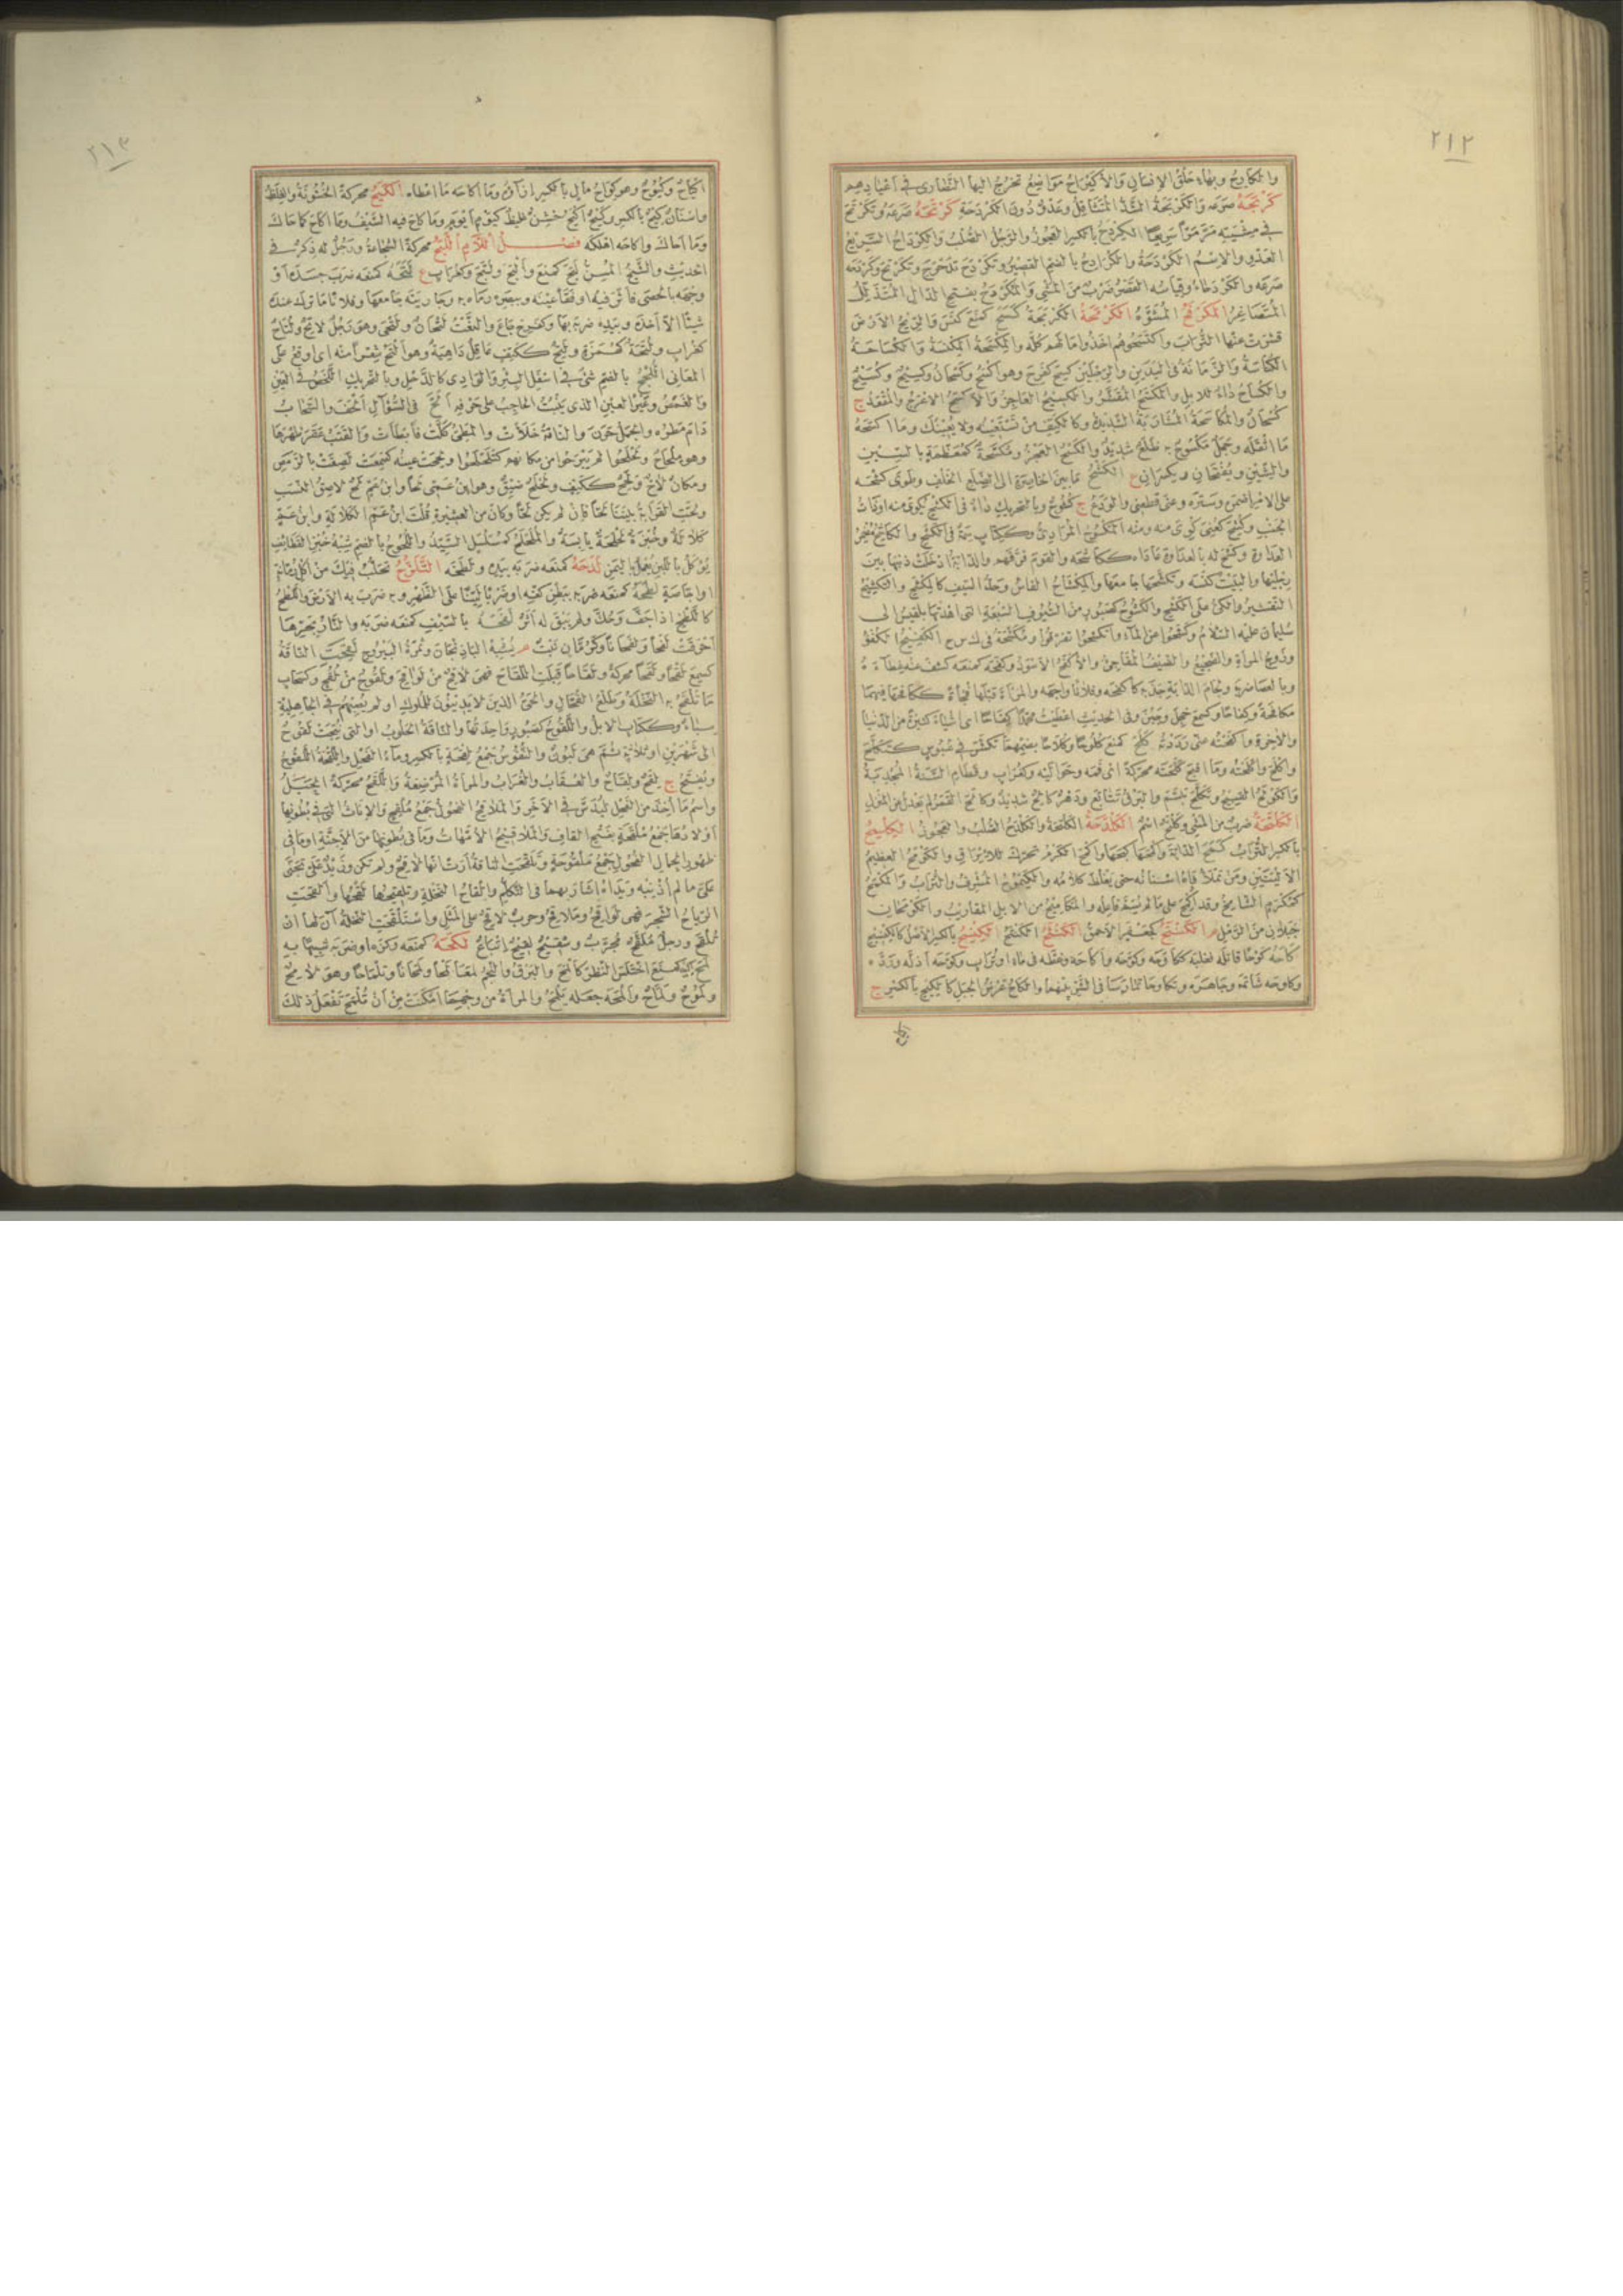 ٢١٢
والكارح وبهاء حلق الإنسان والأكيراح مواضع تخرج اليها النصارى في أعيادهم
كربحه صرعه والكربحة الشد المتثاقل وعدو دون الكردحة كرتحه صرعه وتكرتح
في مشيته مر مرا سريعا الكردح بالكسر العجوز والرجل الصلب والكرداح السريع
العدو والاسم الكردحة والكرادح بالضم القصير وتكردح تدحرج
صرعه
المتصاغر الكرفح المشوه الكرمحة الكربحة كسح كمنع كنس والريح الأرض
قشرت عنها التراب واكتسحوهم اخذوا مالهم كله والمكسحة المكنسة والكساحة
الكناسة والزمانة في اليدين والرجلين كسح كفرح وهو اكسح وكسحان وكسيح
والكساح داء للابل والمكسح المقشر والكسيح العاجز والأكسح الاعرج والمقعد ج
كسحان والمكاسحة المشاربة الشديدة وككيف من تستعينه ولا يعينك وما اكسحه
ما اثقله وجمل مكسوح به ظلع شديد والكسح العجز
الكشح ما بين الخاصرة الى الضلع الخلف وطوى كشحه
على الامر اضمره وستره وعنى قطعنى والودع ج كشوح وبالتحريك داء في الكشح يكوى منه اوذات
الجنب وكشح كعنى كوى منه ومنه المكشوح المرادى وككتاب سمة في الكشح والكاشح مضمر
العداوة وكشح له بالعداوة عاداه ككاشحه والقوم فرقهم والدابة ادخلت ذنبها بين
رجليها والبيت كنسه وتكشحها جامعها والمكشاح الفاس وحد السيف كالمكشح والتكشيح
التقشير والكى على الكشح والكشوح كصبور من السيوف السبعة التى اهدتها بلقيس الى
سليمان عليه السلام وكشحوا عن الماء وانكشحوا تفرقوا الكفيح الكفؤ
وزوج المرأة والضجيع والضيف المفاجئ والأكفح الاسود وكفحه كمنعه كشف عنه غطاءه
وبالعصا ضربه ولجام الدابة جذبه كاكفحه وفلانا واجهه والمرأة قبلها فجأة ككافحها فيهما
مكافحة وكفاحا وكسمع خجل وجبن وفي الحديث اعطيت محمدا كفاحا اى اشياء كثيرة من الدنيا
والآخرة واكفحته عنى رددته كلح كمنع كلوحا وكلاحا بضمهما تكشر في عبوس كتكلح
واكلح واكلحته وما اقبح كلحته محركة اى فمه وحواليه وكغراب وقطام السنة المجدبة
والكولح القبيح وتكلح تبسم والبرق تتابع ودهر كالح شديد وكالح القمر لم يعدل عن المنزل
الكلتحة ضرب من المشى وكلتح اسم الكلدحة الكلتحة والكلدح الصلب والعجوز الكلمح
بالكسر التراب كمح الدابة وكمحها واكمح الكرم تحرك للايراق والكومح العظيم
الاليتين ومن تملأ فاه اسنانه حتى يغلظ كلامه والكيموح المشرف والتراب والمكمح
كمكرم الشامخ
جبلان من الرمل م الكنتح كجعفر الأحمق الكنثح الكنتح الكنسيح بالكسر الاصل كالكنسيح
كاحه كوحا قاتله فغلبه ككاوحه وكوحه واكاحه وغطه في ماء او تراب وكوحه اذله ورده
وكاوحه شاتمه وجاهره وتكاوحا تمارسا في الشر بينهما والكاح عرض الجبل كالكيح بالكسر ج
اكياح
٢١٣
اكياح وكيوح وهو كواح مال بالكسر ازاؤه وما اكاحه ما اعطاه الكيح محركة الخشونة والغلظ
واسنان كيح بالكسر وكيح اكيح خشن غليظ كيوم ايوم وما كاح فيه السيف وما اكاح كما حاك
وما احاك واكاحه اهلكه فصل اللام اللبح محركة الشجاعة ورجل له ذكر في
الحديث والشيخ المسن لبح كمنع وألبح ولبح وكغراب ع لتحه كمنعه ضرب جسده او
وجهه بالحصى فاثر فيه او فقأ عينه وببصره رماه به وجاريته جامعها وفلانا ما ترك عنده
شيئا الا اخذه وبيده ضربه بها وكفرح جاع والنعت لتحان ولتحى وهو رجل لاتح ولتاح
كغراب ولتحة كهمزة ولتح ككتف عاقل داهية وهو ألتح شعرا منه اى اوقع على
المعانى اللجح بالضم شئ في اسفل البئر والوادى كالدحل وبالتحريك اللخص في العين
والغمص وعير العين الذى ينبت الحاجب على حرفه ألح في السؤال ألحف والسحاب
دام مطره والجمل حرن والناقة خلأت والمطى كلت فابطأت والقتب عقر ظهرها
وهو ملحاح وتحلحوا لم يبرحوا من مكانهم كتلحلحوا ولححت عينه كسمعت لصقت بالرمص
ومكان لاح ولحح ككتف ولحلح ضيق وهو ابن عمى لحا وابن عم لح لاصق النسب
ولحت القرابة بيننا لحا فان لم يكن لحا وكان من العشيرة قلت ابن عم الكلالة وابن عم
كلالة وخبزة لحلحة يابسة والملحلح كمسلسل السيد واللحوح بالضم شبه خبز القطائف
يؤكل باللبن يعمل باليمن لدحه كمنعه ضربه بيده ولطحه التلزح تحلب فيك من اكل رمانة
او اجاصة لطحه كمنعه ضربه ببطن كفه او ضربا لينا على الظهر وبه ضرب به الارض واللطح
كاللطخ اذا جف وحك ولم يبق له اثر لفحه بالسيف كمنعه ضربه والنار بحرها
احرقت لفحا ولفحانا وكرمان نبت م يشبه الباذنجان وثمرة اليبروح لقحت الناقة
كسمع لقحا ولقحا محركة ولقاحا قبلت اللقاح فهى لاقح من لواقح ولقوح من لقح وكسحاب
ما تلقح به النخلة وطلع الفحال والحى الذين لا يدينون للملوك او لم يصبهم في الجاهلية
سباء وككتاب الابل واللقوح كصبور واحدتها والناقة الحلوب او التى نتجت لقوح
الى شهرين او ثلاثة ثم هى لبون والنفوس جمع لقحة بالكسر وماء الفحل واللقحة اللقوح
ويفتح ج لقح ولقاح والعقاب والغراب والمرأة المرضعة واللقح محركة الحبل
واسم ما اخذ من الفحل ليدس في الآخر والملاقح الفحول جمع ملقح والاناث التى في بطونها
اولادها جمع ملقحة بفتح القاف والملاقيح الامهات وما في بطونها من الاجنة او ما في
ظهور الجمال الفحول جمع ملقوحة وتلقحت الناقة ارت انها لاقح ولم تكن وزيد على تجنى
على ما لم اذنبه ويداه اشار بهما في التكلم والقاح النخلة وتلقيحها لقحها والقحت
الرياح الشجر فهى لواقح وملاقح وحرب لاقح على المثل واستلقحت النخلة آن لها ان
تلقح ورجل ملقح مجرب وشقيح لقيح اتباع لكحه كمنعه وكزه او ضربه شبيها به
لمح اليه كمنع اختلس النظر كألمح والبرق والنجم لمعا لمحا ولمحانا وتلماحا وهو لامح
ولموح ولماح والمحه جعله يلمح والمرأة من وجهها امكنت من ان تلمح تفعل ذلك